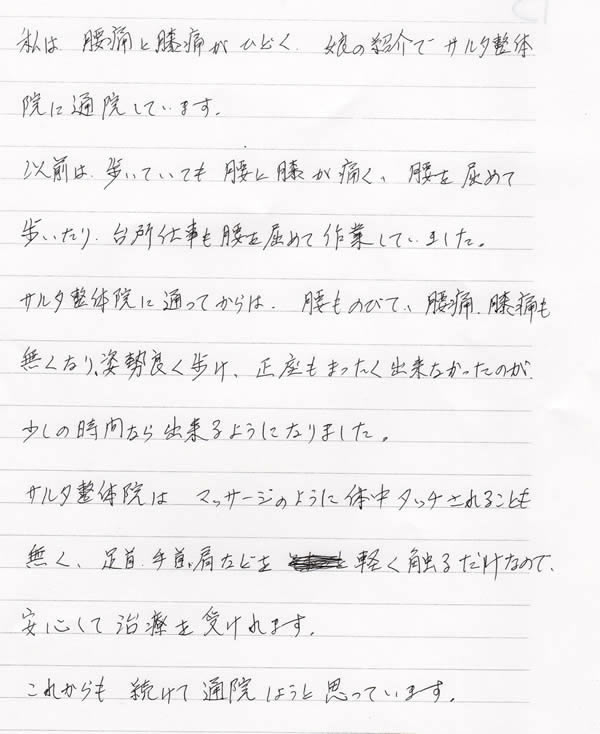 私は、腰痛と膝痛がひどく、娘の紹介でサルタ整体
院に通院しています。
以前は、歩いていても腰と膝が痛く、腰を屈めて
歩いたり、台所仕事も腰を屈めて作業していました。
サルタ整体院に通ってからは、腰ものびて、腰痛、膝痛も
無くなり、姿勢良く歩け、正座もまったく出来なかったのが、
少しの時間なら出来るようになりました。
サルタ整体院は マッサージのように体中タッチされることも
無く、足首、手首、肩などを 軽く触るだけなので、
安心して治療を受けれます。
これからも 続けて通院しようと思っています。